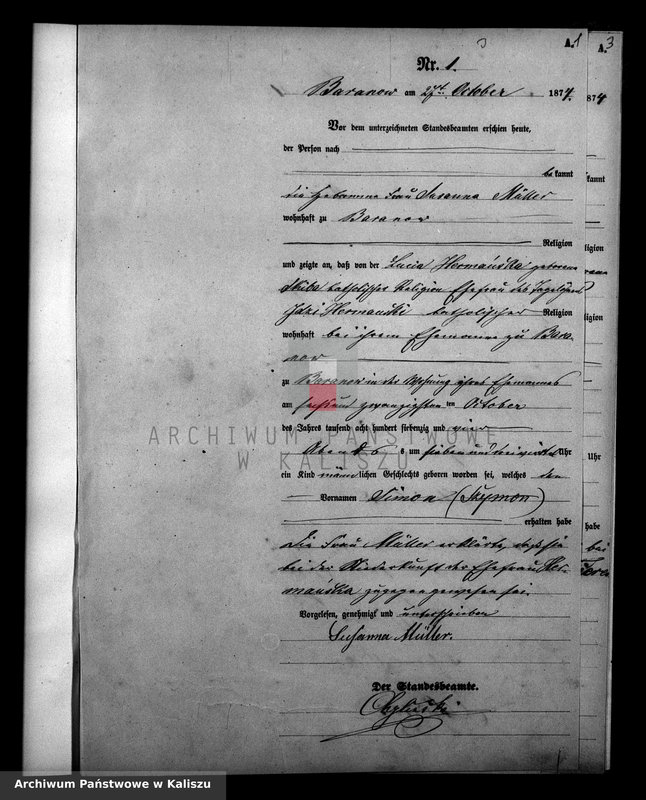 A.1
3
A.
Nr. 1.
Baranow am 27ten October 1874.
874
Vor dem unterzeichneten Standesbeamten erschien heute,
der Person nach
bekannt
kannt
die Hebamme Frau Susanna Müller
wohnhaft zu Baranow
Religion
ligion
und zeigte an, daß von der Lucia Hermańska geborene
Skiba katholischer Religion Ehefrau des
Hermanski katholischer Religion
ligion
wohnhaft bei ihrem Ehemanne zu Bara
now
zu Baranow in der Wohnung ihres Ehemannes
am sechsundzwanzigsten ten October
des Jahres tausend acht hundert siebenzig und vier
Abends um sieben Uhr
Uhr
ein Kind männlichen Geschlechts geboren worden sei, welches den
Vornamen Simon (Szymon)
erhalten habe
habe
Die Frau Müller erklärte, daß sie
bei
bei der Niederkunft der Ehefrau Her-
mańska zugegen gewesen sei.
Vorgelesen, genehmigt und unterschrieben
Susanna Müller.
Der Standesbeamte.
ARCHIWUM PAŃSTWOWE
W KALISZU
Archiwum Państwowe w Kaliszu